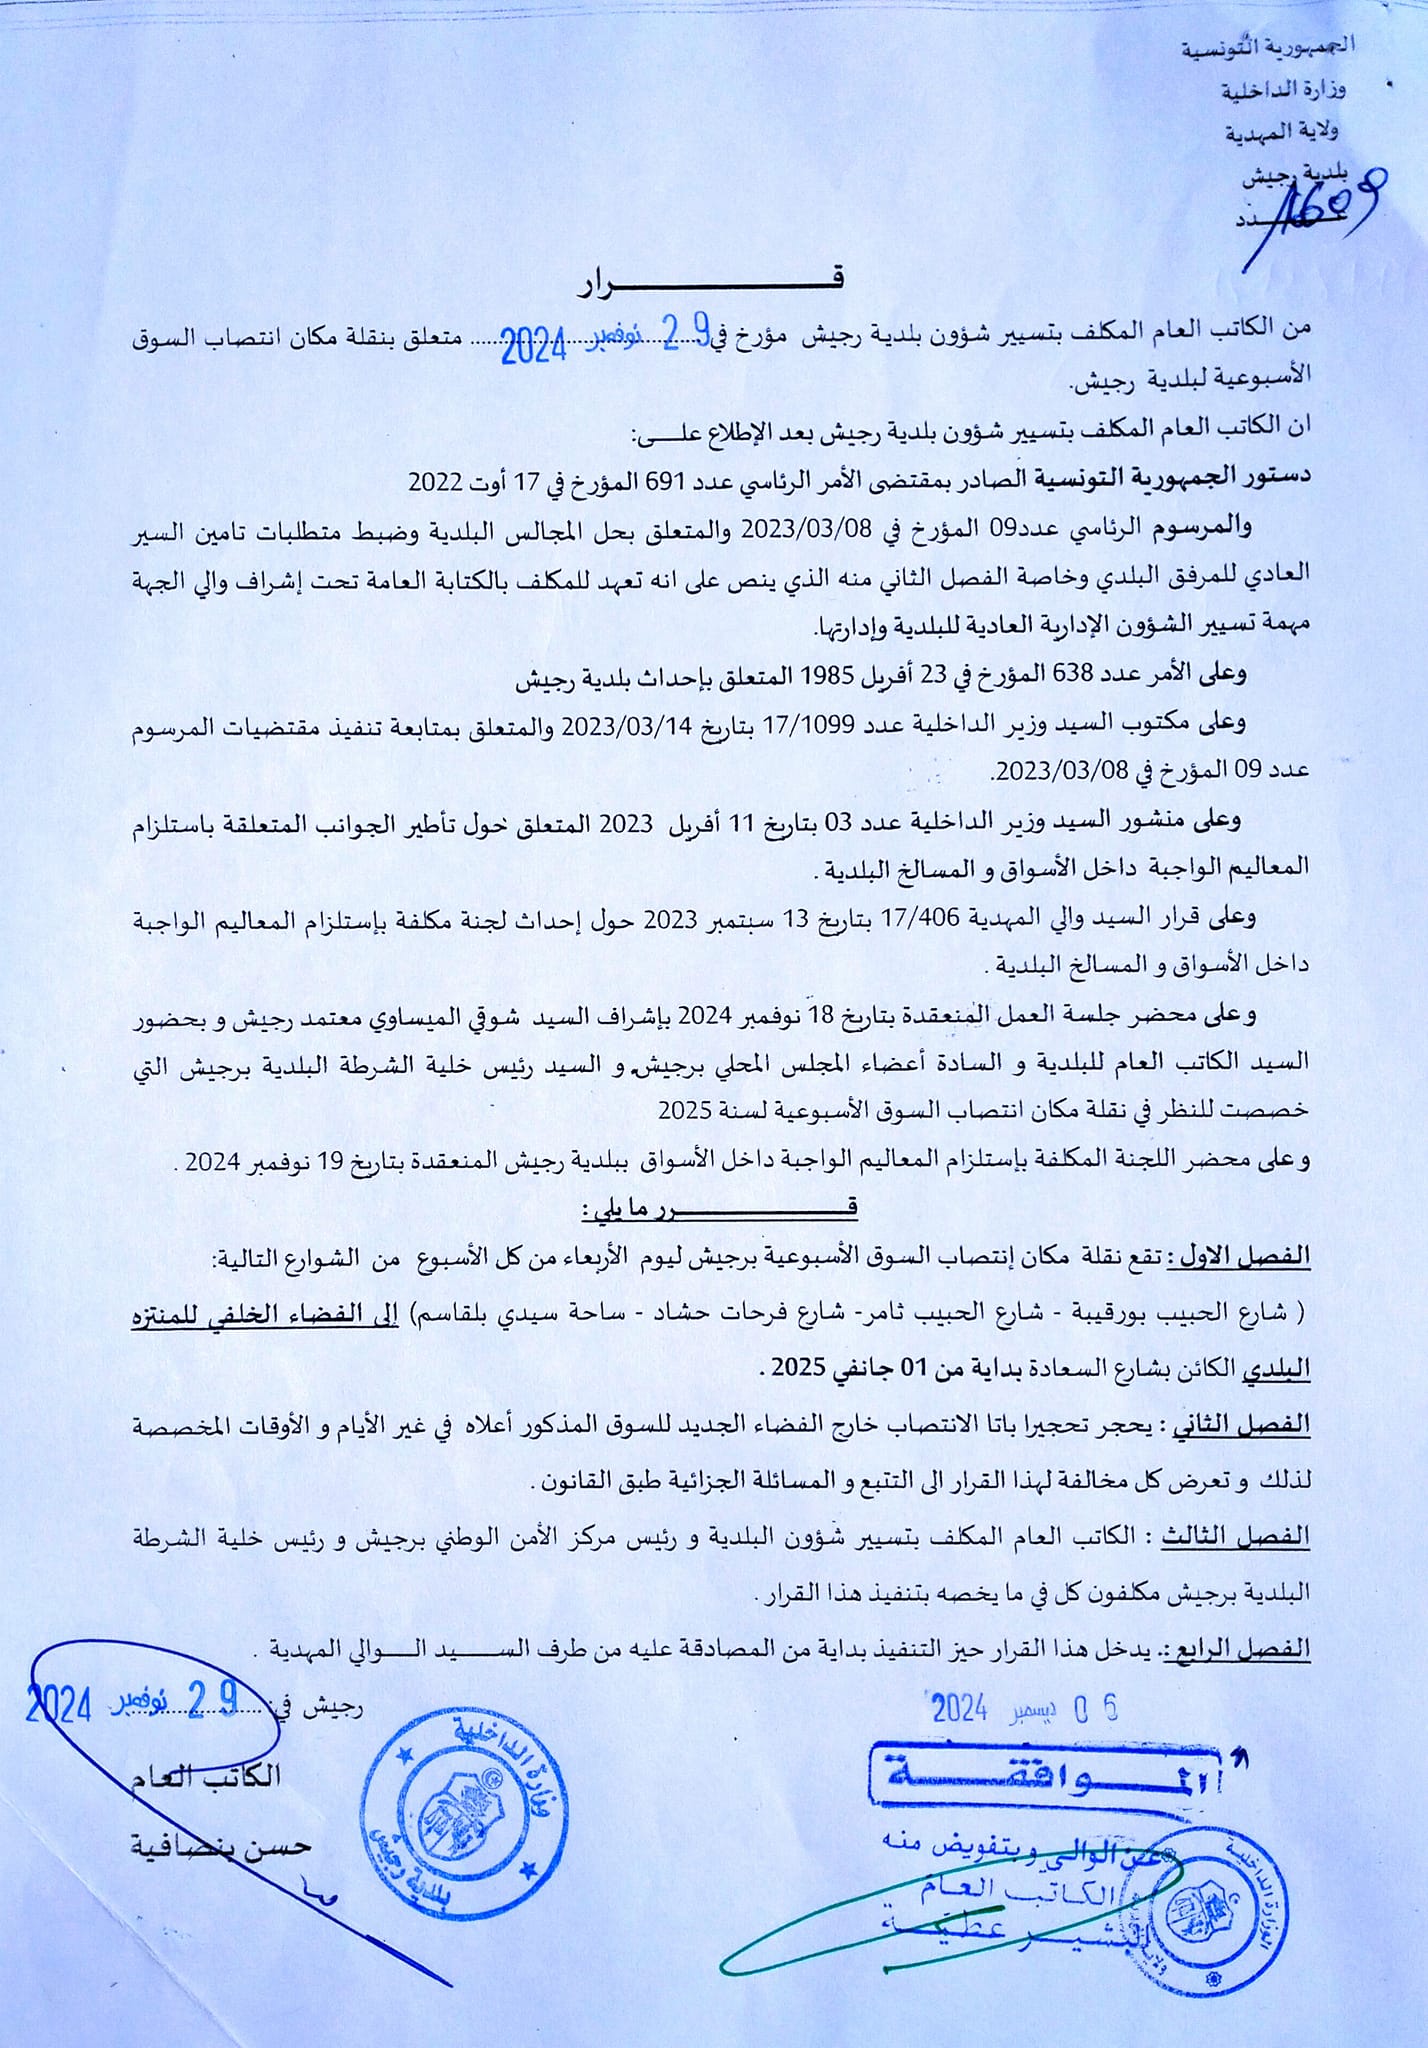 الجمهورية التونسية
وزارة الداخلية
ولاية المهدية
بلدية رجيش
عــــدد 1609
قــــــــرار
من الكاتب العام المكلف بتسيير شؤون بلدية رجيش مؤرخ في 29 نوفمبر 2024 متعلق بنقلة مكان انتصاب السوق
الأسبوعية لبلدية رجيش.
ان الكاتب العام المكلف بتسيير شؤون بلدية رجيش بعد الإطلاع علــــى:
دستور الجمهورية التونسية الصادر بمقتضى الأمر الرئاسي عدد 691 المؤرخ في 17 أوت 2022
والمرسوم الرئاسي عدد09 المؤرخ في 2023/03/08 والمتعلق بحل المجالس البلدية وضبط متطلبات تامين السير
العادي للمرفق البلدي وخاصة الفصل الثاني منه الذي ينص على انه تعهد للمكلف بالكتابة العامة تحت إشراف والي الجهة
مهمة تسيير الشؤون الإدارية العادية للبلدية وإدارتها.
وعلى الأمر عدد 638 المؤرخ في 23 أفريل 1985 المتعلق بإحداث بلدية رجيش
وعلى مكتوب السيد وزير الداخلية عدد 17/1099 بتاريخ 2023/03/14 والمتعلق بمتابعة تنفيذ مقتضيات المرسوم
عدد 09 المؤرخ في 2023/03/08.
وعلى منشور السيد وزير الداخلية عدد 03 بتاريخ 11 أفريل 2023 المتعلق حول تأطير الجوانب المتعلقة باستلزام
المعاليم الواجبة داخل الأسواق و المسالخ البلدية .
وعلى قرار السيد والي المهدية 17/406 بتاريخ 13 سبتمبر 2023 حول إحداث لجنة مكلفة بإستلزام المعاليم الواجبة
داخل الأسواق و المسالخ البلدية .
وعلى محضر جلسة العمل المنعقدة بتاريخ 18 نوفمبر 2024 بإشراف السيد شوقي الميساوي معتمد رجيش و بحضور
السيد الكاتب العام للبلدية و السادة أعضاء المجلس المحلي برجيش و السيد رئيس خلية الشرطة البلدية برجيش التي
خصصت للنظر في نقلة مكان انتصاب السوق الأسبوعية لسنة 2025
وعلى محضر اللجنة المكلفة بإستلزام المعاليم الواجبة داخل الأسواق ببلدية رجيش المنعقدة بتاريخ 19 نوفمبر 2024 .
قــــــــرر ما يلي :
الفصل الاول : تقع نقلة مكان إنتصاب السوق الأسبوعية برجيش ليوم الأربعاء من كل الأسبوع من الشوارع التالية:
( شارع الحبيب بورقيبة - شارع الحبيب ثامر- شارع فرحات حشاد - ساحة سيدي بلقاسم) إلى الفضاء الخلفي للمنتزه
البلدي الكائن بشارع السعادة بداية من 01 جانفي 2025 .
الفصل الثاني : يحجر تحجيرا باتا الانتصاب خارج الفضاء الجديد للسوق المذكور أعلاه في غير الأيام و الأوقات المخصصة
لذلك و تعرض كل مخالفة لهذا القرار الى التتبع و المسائلة الجزائية طبق القانون .
الفصل الثالث : الكاتب العام المكلف بتسيير شؤون البلدية و رئيس مركز الأمن الوطني برجيش و رئيس خلية الشرطة
البلدية برجيش مكلفون كل في ما يخصه بتنفيذ هذا القرار .
الفصل الرابع : يدخل هذا القرار حيز التنفيذ بداية من المصادقة عليه من طرف الســـيد الـــوالي المهدية .
رجيش في 29 نوفمبر 2024
06 ديسمبر 2024
الكاتب العام
حسن بنصافية
وزارة الداخلية
بلدية رجيش
الموافقة
عن الوالي وبتفويض منه
الكاتب العام
البشير عطية
الوزارة الداخلية